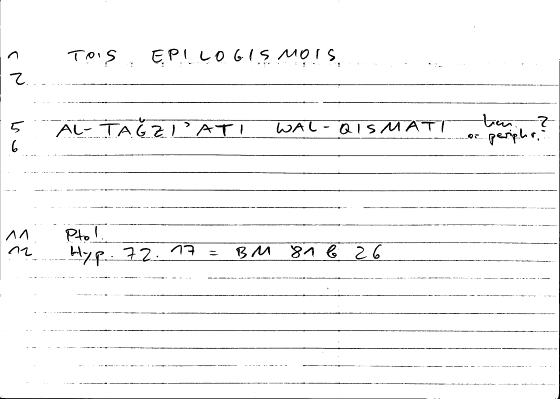 1 TOIS EPILOGISMOIS
2
5 AL-TAǦZI'ATI WAL-QISMATI hen. ?
6 or periphr.
11 Ptol.
12 Hyp. 72. 17 = BM 81 b 26